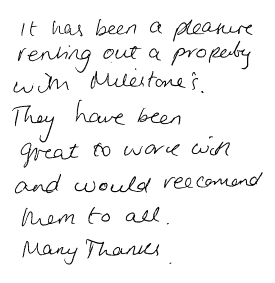 It has been a pleasure
renting out a property
with Milestone's.
They have been
great to work with
and would reecomend
them to all.
Many Thanks.